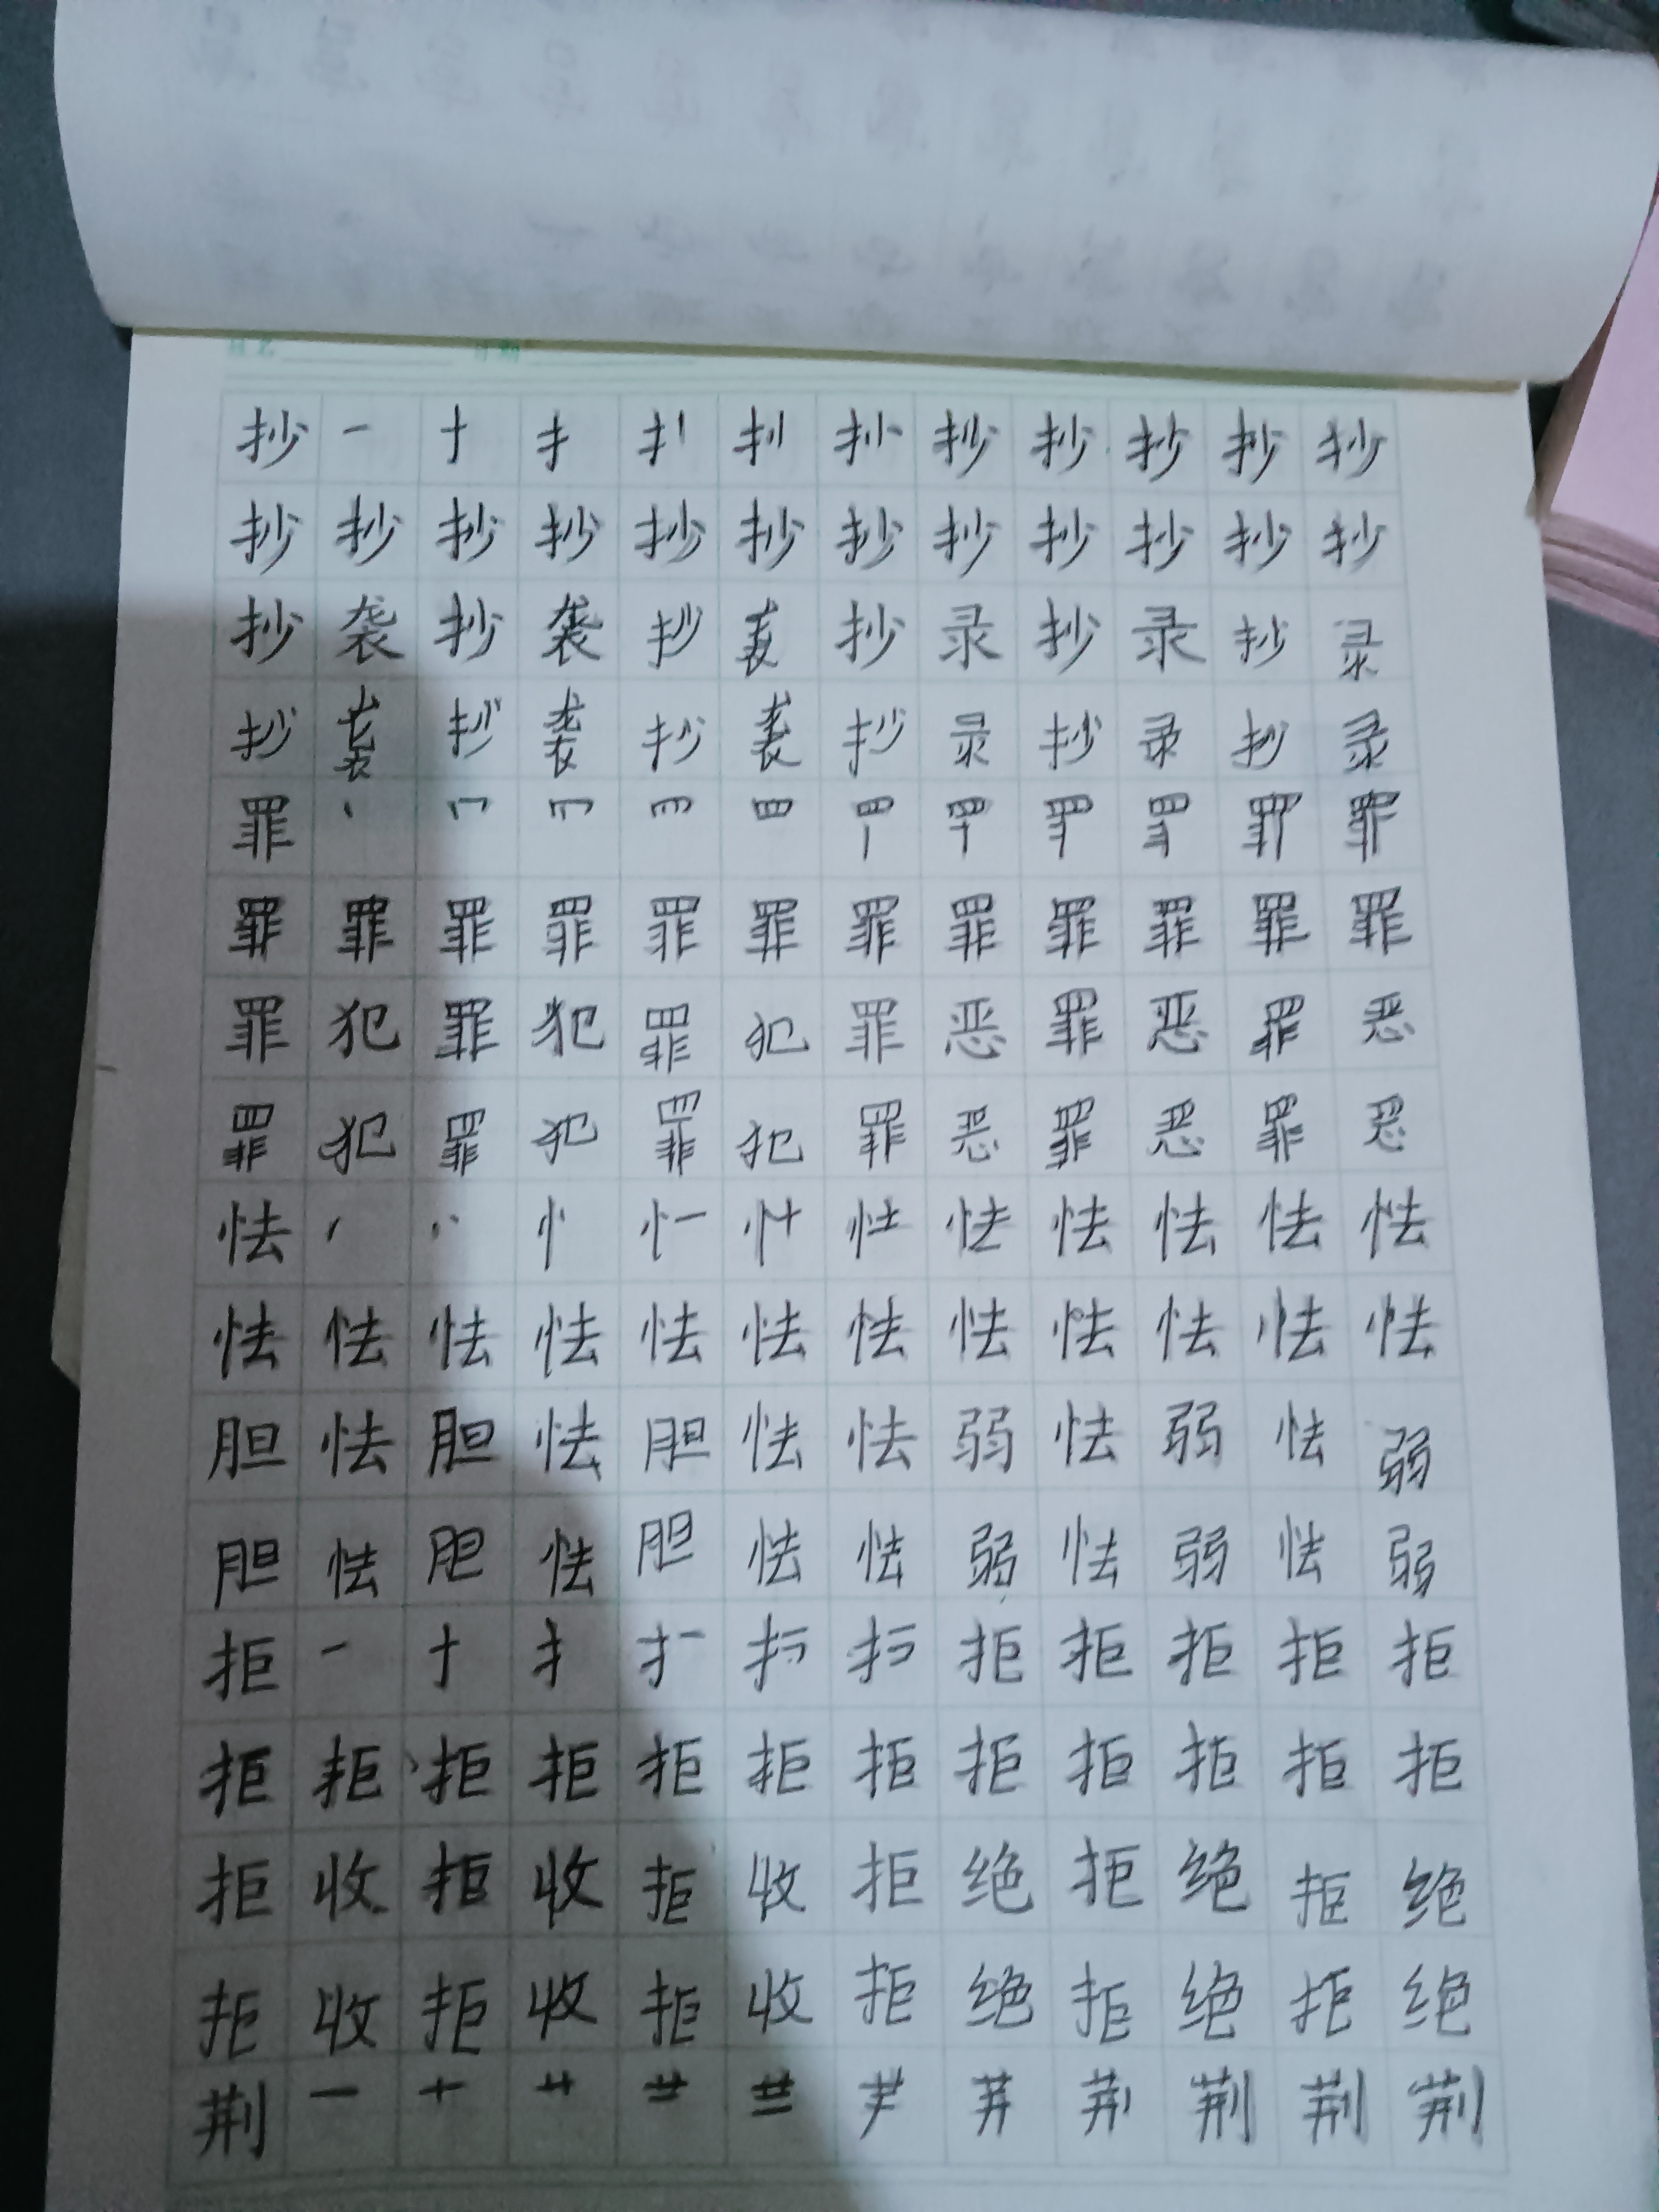 抄 一 十 扌 抄 抄 抄 抄 抄
抄 抄 抄 抄 抄 抄 抄 抄 抄 抄 抄 抄
抄 袭 抄 袭 抄 袭 抄 录 抄 录 抄 录
抄 袭 抄 袭 抄 袭 抄 录 抄 录 抄 录
罪 丶 罪 罪
罪 罪 罪 罪 罪 罪 罪 罪 罪 罪 罪 罪
罪 犯 罪 犯 罪 犯 罪 恶 罪 恶 罪 恶
罪 犯 罪 犯 罪 犯 罪 恶 罪 恶 罪 恶
怯 忄 怯 怯 怯 怯 怯
怯 怯 怯 怯 怯 怯 怯 怯 怯 怯 怯 怯
胆 怯 胆 怯 胆 怯 怯 弱 怯 弱 怯 弱
胆 怯 胆 怯 胆 怯 怯 弱 怯 弱 怯 弱
拒 一 十 扌 拒 拒 拒 拒 拒
拒 拒 拒 拒 拒 拒 拒 拒 拒 拒 拒 拒
拒 收 拒 收 拒 收 拒 绝 拒 绝 拒 绝
拒 收 拒 收 拒 收 拒 绝 拒 绝 拒 绝
荆 一 十 艹 荆 荆 荆